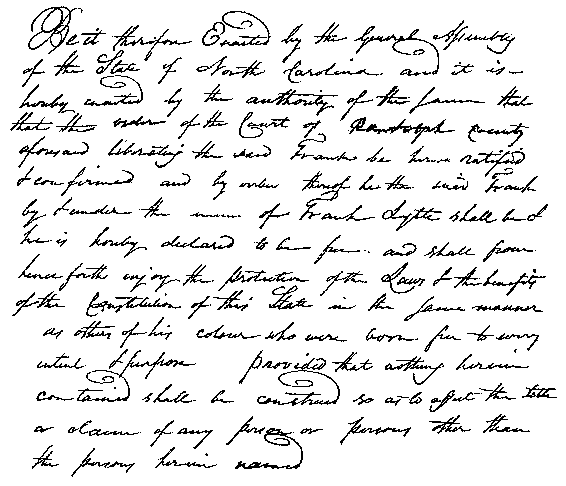 Be it therefore Enacted by the General Assembly
of the State of North Carolina and it is
hereby enacted by the authority of the same that
that the order of the Court of Randolph county
aforesaid liberating the said Frank be hereby ratified
& confirmed and by order he the said Frank
by & under the name of Frank Lytle shall be &
he is hereby declared to be free and shall from
hence forth enjoy the protection of the Laws & the benefits
of the Constitution of this State in the same manner
as others of his colour who were born free to every
intent & purpose provided that nothing herein
contained shall be construed so as to affect the title
or claim of any person or persons other than
the persons herein named